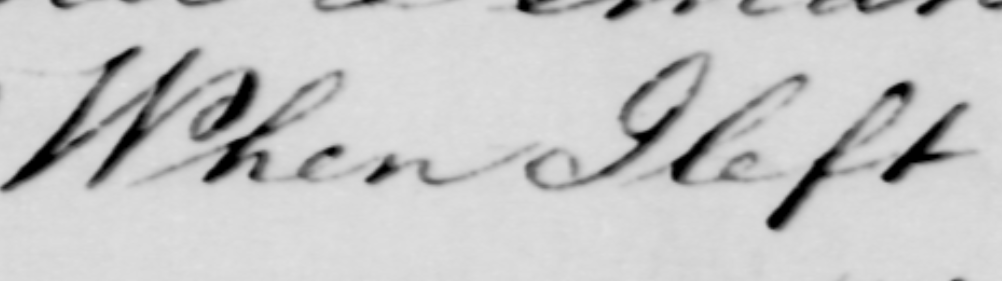 When I left